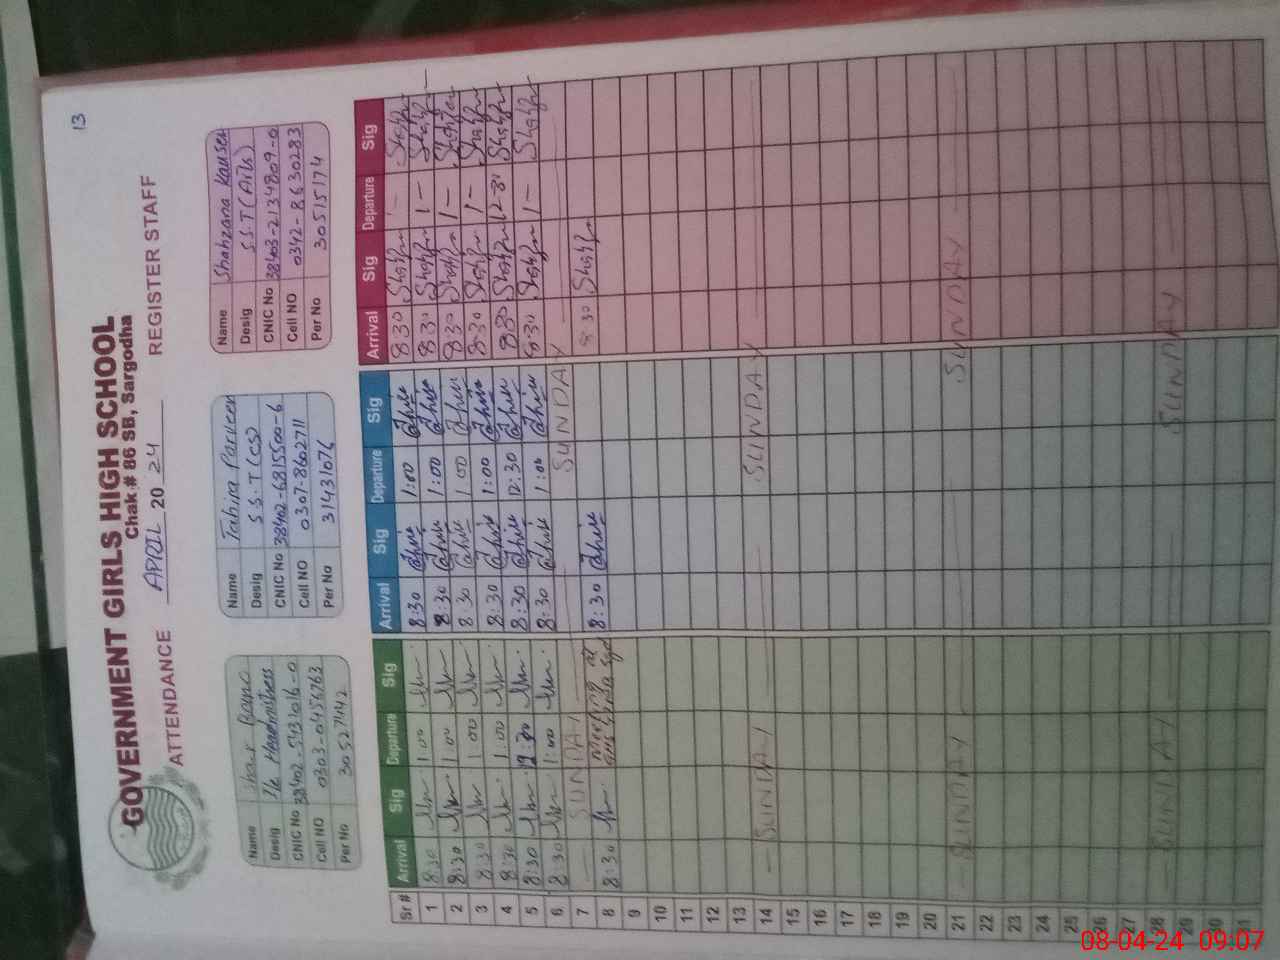 13
GOVERNMENT GIRLS HIGH SCHOOL
Chak # 86 SB, Sargodha
ATTENDANCE APRIL 20 24 REGISTER STAFF
Name Bano
Desig I/c Headmistress
CNIC No 38402-5431016-0
Cell NO 0303-0456763
Per No 30527442
Name Tahira Parveen
Desig S.S.T (CS)
CNIC No 38402-6815500-6
Cell NO 0307-8602711
Per No 31431076
Name Shahzana Kauser
Desig S.S.T (Arts)
CNIC No 38403-2134809-0
Cell NO 0342-8630283
Per No 30515174
Sr# Arrival Sig Departure Sig Arrival Sig Departure Sig Arrival Sig Departure Sig
1 8:30 1:00 8:30 1:00 8:30 1-
2 8:30 1:00 8:30 1:00 8:30 1-
3 8:30 1:00 8:30 1:00 8:30 1-
4 8:30 1:00 8:30 1:00 8:30 1-
5 8:30 12:30 8:30 12:30 8:30
6 8:30 1:00 8:30 1:00 8:30 1-
7 SUNDAY SUNDAY
8 8:30 Meeting at 8:30 8:30
9
10
11
12
13
14 SUNDAY SUNDAY
15
16
17
18
19
20
21 SUNDAY SUNDAY
22
23
24
25
26
27
28 SUNDAY SUNDAY
29
30
31
08-04-24 09:07